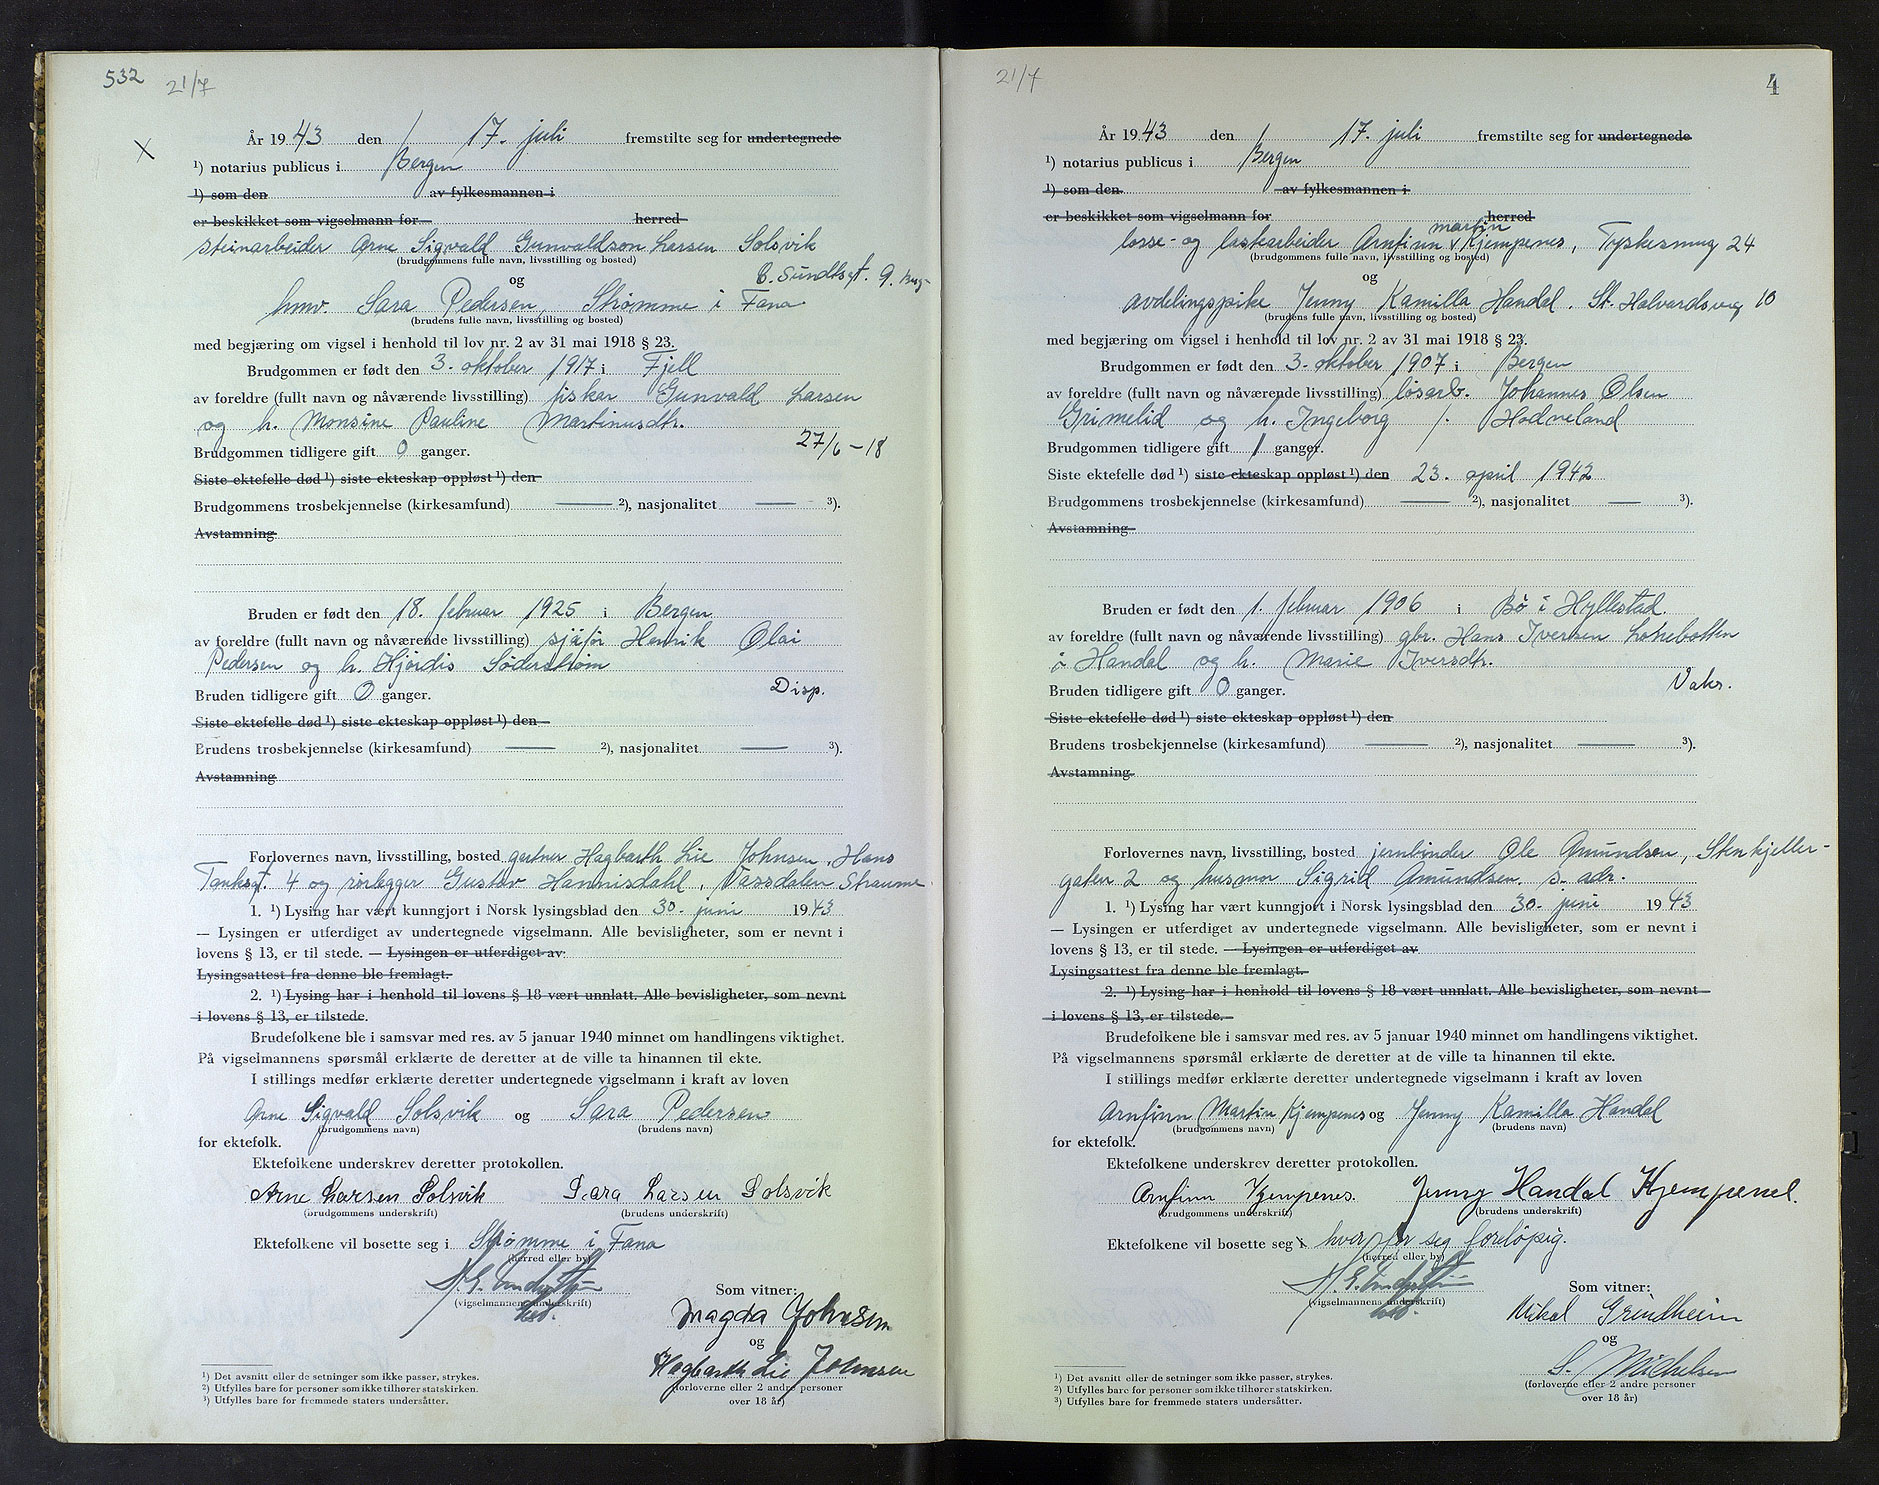 532 21/7
År 1943 den 17. juli fremstilte seg for undertegnede
¹) notarius publicus i Bergen
¹) som den av fylkesmannen i
er beskikket som vigselmann for herred
steinarbeider Arne Sigvald Gunvaldson Larsen Solsvik
(brudgommens fulle navn, livsstilling og bosted)
og E. Sundtsgt. 9. Brg.
hmv. Sara Pedersen, Strømme i Fana
(brudens fulle navn, livsstilling og bosted)
med begjæring om vigsel i henhold til lov nr. 2 av 31 mai 1918 § 23.
Brudgommen er født den 3. oktober 1917 i Fjell
av foreldre (fullt navn og nåværende livsstilling) fiskar Gunvald Larsen
og h. Monsine Pauline Martinusdtr.
Brudgommen tidligere gift 0 ganger. 27/6 – 18
Siste ektefelle død ¹) siste ekteskap oppløst ¹) den
Brudgommens trosbekjennelse (kirkesamfund) — ²), nasjonalitet — ³).
Avstamning
Bruden er født den 18. februar 1925 i Bergen
av foreldre (fullt navn og nåværende livsstilling) sjåfør Henrik Olai
Pedersen og h. Hjørdis Söderstrøm
Bruden tidligere gift 0 ganger. Disp.
Siste ektefelle død ¹) siste ekteskap oppløst ¹) den
Brudens trosbekjennelse (kirkesamfund) — ²), nasjonalitet — ³).
Avstamning
Forlovernes navn, livsstilling, bosted gartner Hagbarth Lie Johnsen, Hans
Tanksgt. 4 og rørlegger Gustav Hannisdahl, Vassdalen Straume
1. ¹) Lysing har vært kunngjort i Norsk lysingsblad den 30. juni 1943
— Lysingen er utferdiget av undertegnede vigselmann. Alle bevisligheter, som er nevnt i
lovens § 13, er til stede. — Lysingen er utferdiget av
Lysingsattest fra denne ble fremlagt.
2. ¹) Lysing har i henhold til lovens § 18 vært unnlatt. Alle bevisligheter, som nevnt
i lovens § 13, er tilstede.
Brudefolkene ble i samsvar med res. av 5 januar 1940 minnet om handlingens viktighet.
På vigselmannens spørsmål erklærte de deretter at de ville ta hinannen til ekte.
I stillings medfør erklærte deretter undertegnede vigselmann i kraft av loven
Arne Sigvald Solsvik og Sara Pedersen
(brudgommens navn) (brudens navn)
for ektefolk.
Ektefolkene underskrev deretter protokollen.
Arne Larsen Solsvik Sara Larsen Solsvik
(brudgommens underskrift) (brudens underskrift)
Ektefolkene vil bosette seg i Strømme i Fana
(herred eller by)
(vigselmannens underskrift)
Som vitner:
Magda Johnsen
og
Hagbarth Lie Johnsen
(forloverne eller 2 andre personer
over 18 år)
¹) Det avsnitt eller de setninger som ikke passer, strykes.
²) Utfylles bare for personer som ikke tilhører statskirken.
³) Utfylles bare for fremmede staters undersåtter.
21/7 4
År 1943 den 17. juli fremstilte seg for undertegnede
¹) notarius publicus i Bergen
¹) som den av fylkesmannen i
er beskikket som vigselmann for herred
martin
losse- og lastearbeider Arnfinn v Kjempenes, Tyskesmug 24
(brudgommens fulle navn, livsstilling og bosted)
og
avdelingspike Jenny Kamilla Handal. St. Halvardsveg 10
(brudens fulle navn, livsstilling og bosted)
med begjæring om vigsel i henhold til lov nr. 2 av 31 mai 1918 § 23.
Brudgommen er født den 3. oktober 1907 i Bergen
av foreldre (fullt navn og nåværende livsstilling) løsarb. Johannes Olsen
Grimelid og h. Ingeborg f. Hodneland
Brudgommen tidligere gift 1 ganger.
Siste ektefelle død ¹) siste ekteskap oppløst ¹) den 23. april 1942
Brudgommens trosbekjennelse (kirkesamfund) — ²), nasjonalitet — ³).
Avstamning
Bruden er født den 1. februar 1906 i Bø i Hyllestad
av foreldre (fullt navn og nåværende livsstilling) gbr. Hans Iversen Lokebotten
å Handal og h. Marie Iversdtr.
Bruden tidligere gift 0 ganger. Vaks.
Siste ektefelle død ¹) siste ekteskap oppløst ¹) den
Brudens trosbekjennelse (kirkesamfund) — ²), nasjonalitet — ³).
Avstamning
Forlovernes navn, livsstilling, bosted jernbinder Ole Amundsen, Stenkjeller-
gaten 2 og husmor Sigrid Amundsen. s. adr.
1. ¹) Lysing har vært kunngjort i Norsk lysingsblad den 30. juni 1943
— Lysingen er utferdiget av undertegnede vigselmann. Alle bevisligheter, som er nevnt i
lovens § 13, er til stede. — Lysingen er utferdiget av
Lysingsattest fra denne ble fremlagt.
2. ¹) Lysing har i henhold til lovens § 18 vært unnlatt. Alle bevisligheter, som nevnt
i lovens § 13, er tilstede.
Brudefolkene ble i samsvar med res. av 5 januar 1940 minnet om handlingens viktighet.
På vigselmannens spørsmål erklærte de deretter at de ville ta hinannen til ekte.
I stillings medfør erklærte deretter undertegnede vigselmann i kraft av loven
Arnfinn Martin Kjempenes og Jenny Kamilla Handal
(brudgommens navn) (brudens navn)
for ektefolk.
Ektefolkene underskrev deretter protokollen.
Arnfinn Kjempenes. Jenny Handal Kjempenes.
(brudgommens underskrift) (brudens underskrift)
Ektefolkene vil bosette seg i hver for seg foreløpig.
(herred eller by)
(vigselmannens underskrift)
Som vitner:
Mikal Grindheim
og
S. Michelsen
(forloverne eller 2 andre personer
over 18 år)
¹) Det avsnitt eller de setninger som ikke passer, strykes.
²) Utfylles bare for personer som ikke tilhører statskirken.
³) Utfylles bare for fremmede staters undersåtter.